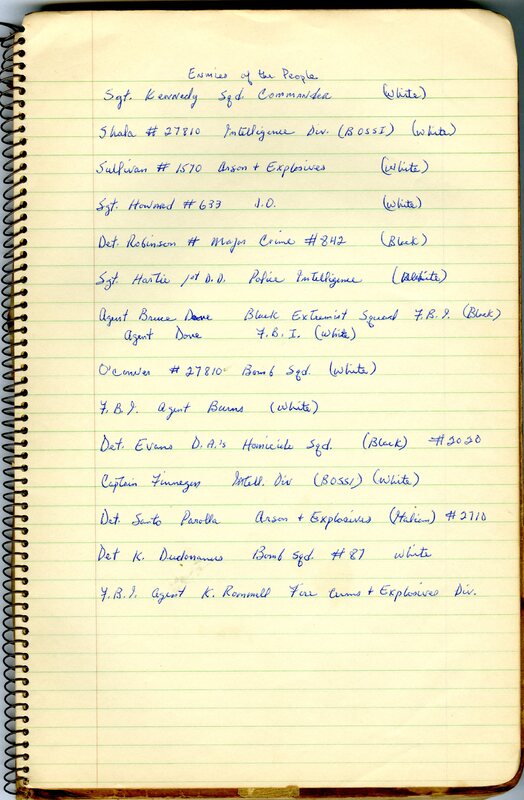 Enmies of the People
Sgt. Kennedy Sqd. Commander (White)
Shala # 27810 Intelligence Div. (BOSSI) (White)
Sullivan # 1570 Arson + Explosives (White)
Sgt. Howard # 633 I.O. (White)
Det. Robinson # Major Crime # 842 (Black)
Sgt. Hartie 1st D.D. Police Intelligence (White)
Agent Bruce Dove Black Extremist Squad F.B.I. (Black)
Agent Dove F.B.I. (White)
O'Conner # 27810 Bomb Sqd. (White)
F.B.I. Agent Burns (White)
Det. Evans D.A.'s Homicide Sqd. (Black) #2020
Captain Finnegan Intell. Div (BOSSI) (White)
Det. Santo Parolla Arson + Explosives (Italian) # 2710
Det K. Bomb Sqd. # 87 White
F.B.I. Agent K. Fire arms + Explosives Div.